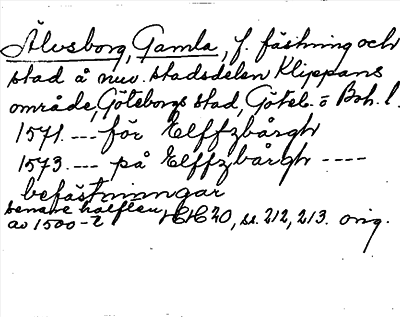 Älvsborg, Gamla, f. fästning och
stad å nuv. stadsdelen Klippans
område, Göteborgs stad, Göteb. o Boh. l.
1571. --- för Elffzbårgh
1573. --- på Elffzbårgh ----
befästninngar
senare hälften
av 1500-t HH 20, ss. 212, 213. orig.